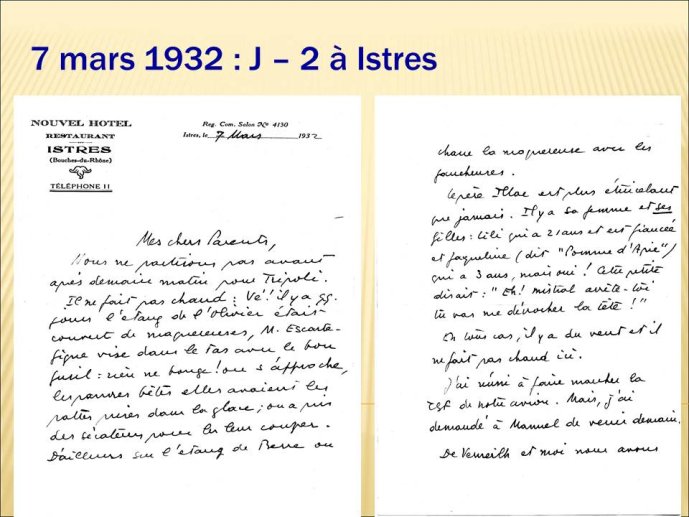 7 mars 1932 : J – 2 à Istres
NOUVEL HOTEL
RESTAURANT
ISTRES
(Bouches-du-Rhône)
TÉLÉPHONE 11
Reg. Com. Salon No 4130
Istres, le 7 Mars 1932
Mes chers Parents,
Nous ne partirons pas avant
après demain matin pour Tripoli.
Il ne fait pas chaud : Vé ! il y a qq.
jours l'étang de l'olivier était
couvert de maquereuses, M. Escarte-
figue vise dans le tas avec le bon
fusil : rien ne bouge ! on s'approche,
les pauvres bêtes elles avaient les
pattes prises dans la glace ; on a pris
des sécateurs pour les leur couper.
D'ailleurs sur l'étang de Berre on
chasse la maquereuse avec les
faucheuses.
Le père est plus étincelant
que jamais. Il y a sa femme et ses
filles : Lili qui a 21 ans et est fiancée
et Jaqueline (dit "Pomme d'Apie")
qui a 3 ans, mais oui ! Cette petite
disait : "Eh ! mistral arrête-toi
tu vas me dévrocher la tête !"
En tous cas, il y a du vent et il
ne fait pas chaud ici.
J'ai réussi à faire marcher la
TSF de notre avion. Mais, j'ai
demandé à Manuel de venir demain.
De Verneilh et moi nous avons